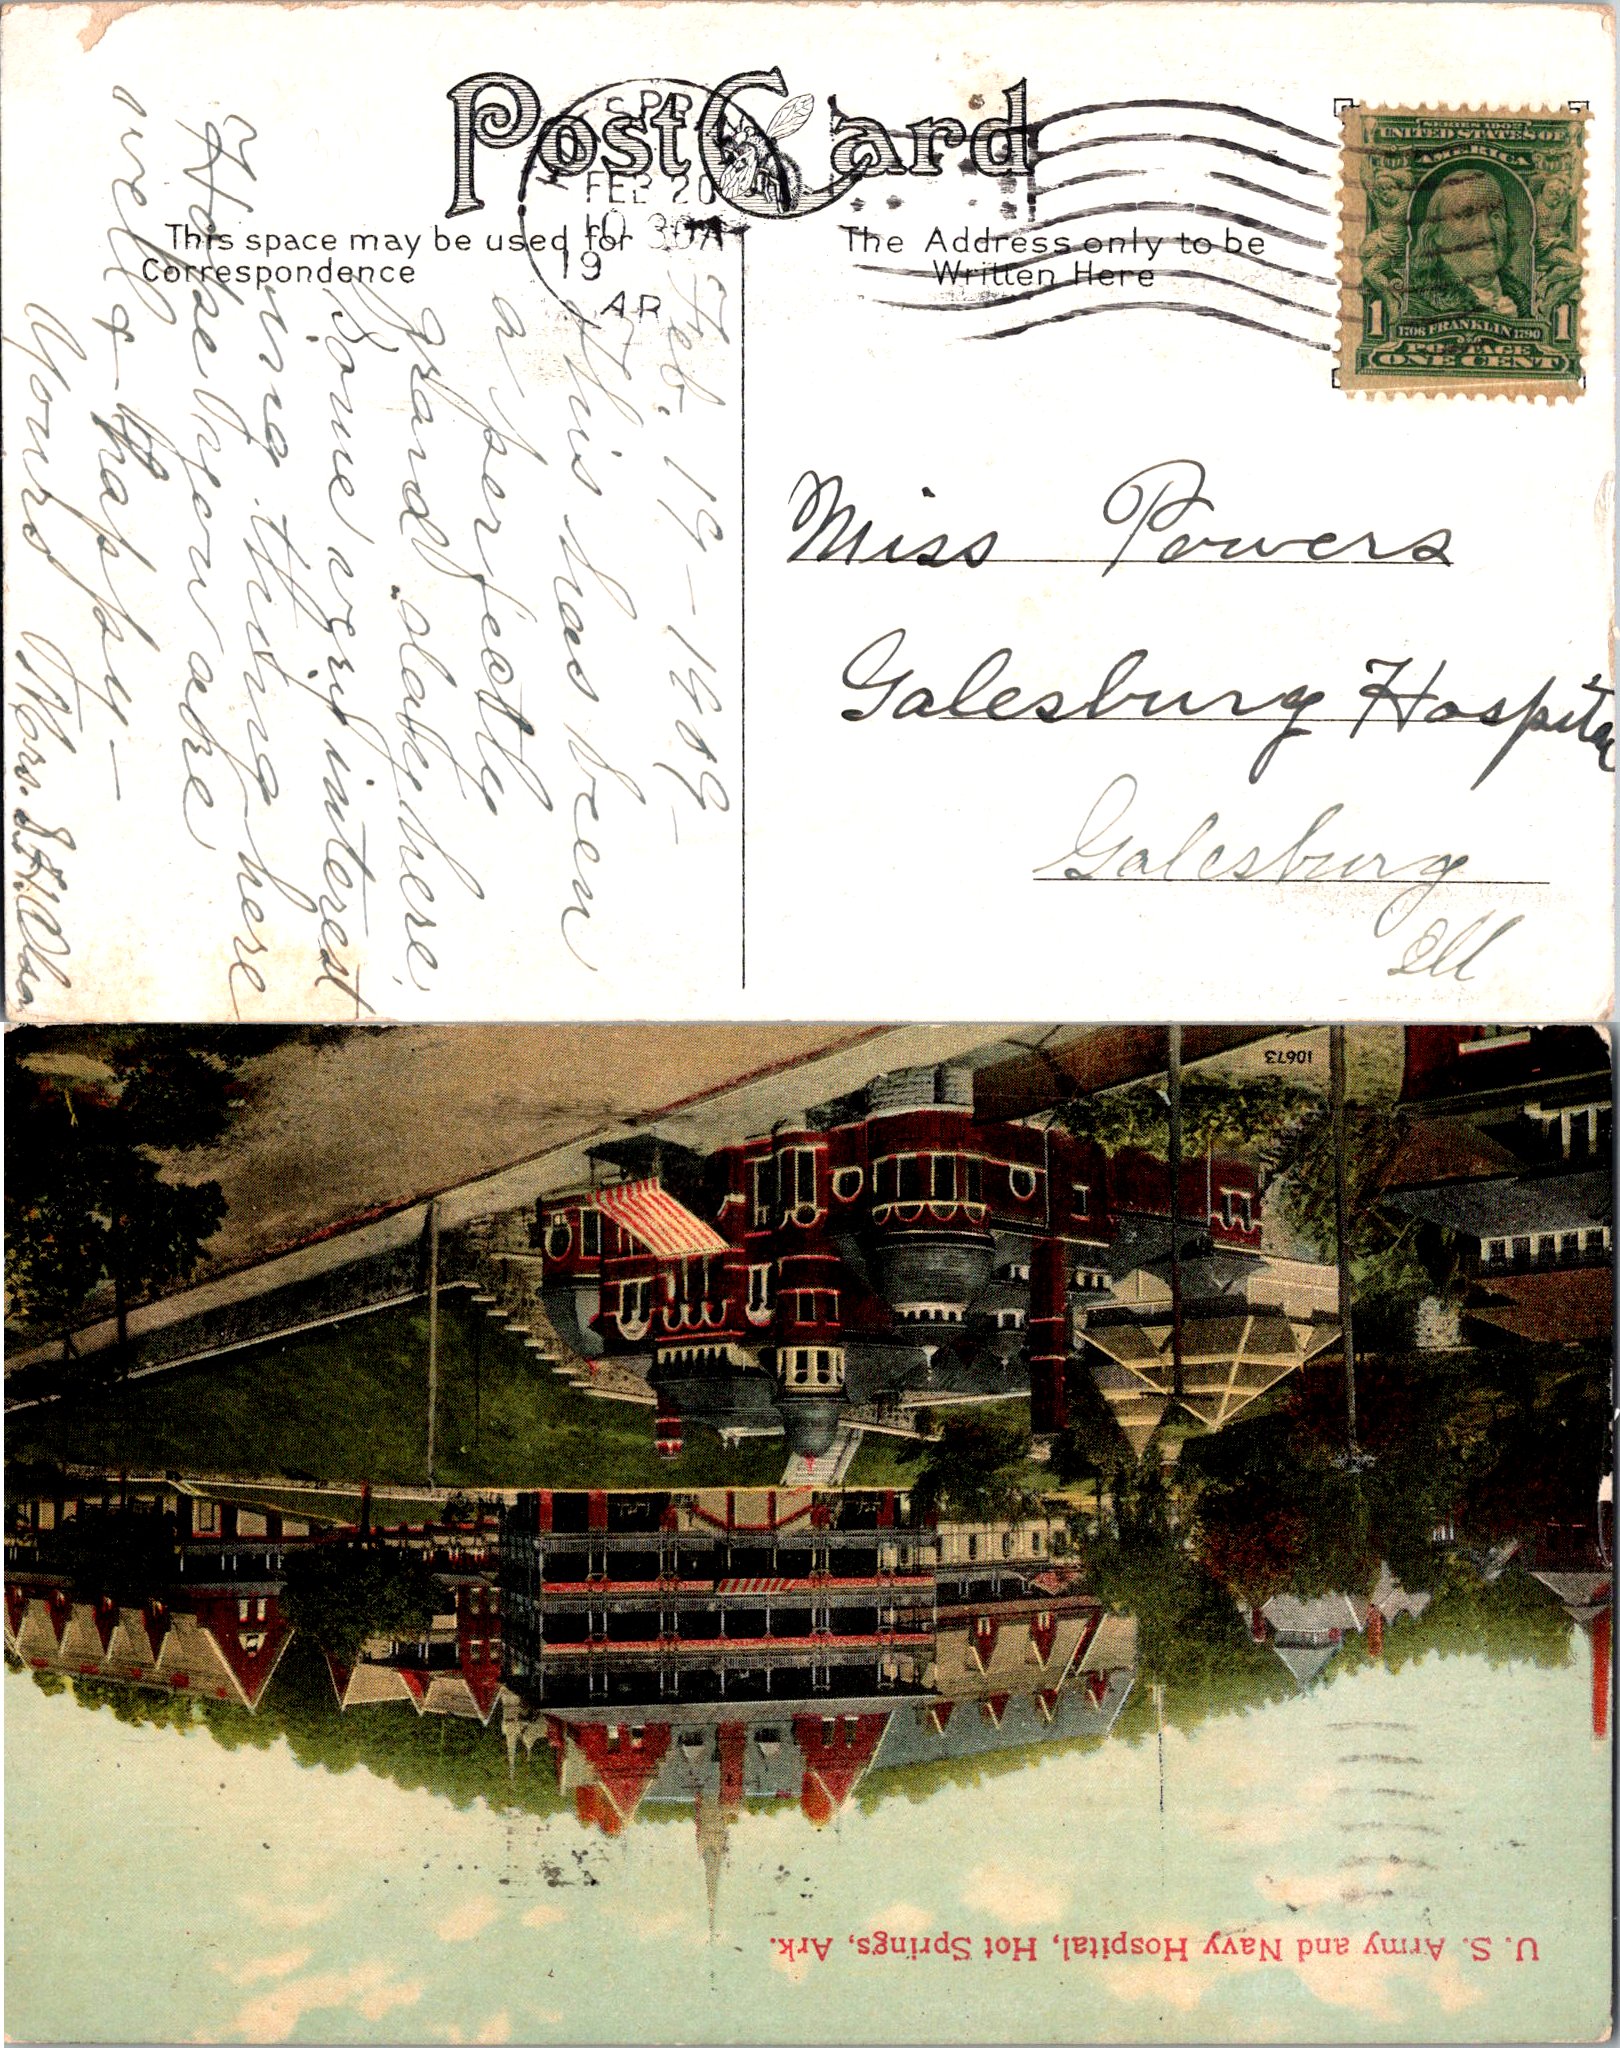 Post Card
This space may be used for
Correspondence
The Address only to be
Written Here
HOT SPR
FEB 20
10 30A
19
AR
SERIES 1902
UNITED STATES OF
AMERICA
1 1706 FRANKLIN 1790 1
POSTAGE
ONE CENT
Feb. 19-1909-
This has been
a perfectly
grand stay here.
Some very interest
ing things here
Hope you are
well & happy-
Yours Mrs.
Miss Powers
Galesburg Hospital
Galesburg
Ill
10673
U. S. Army and Navy Hospital, Hot Springs, Ark.